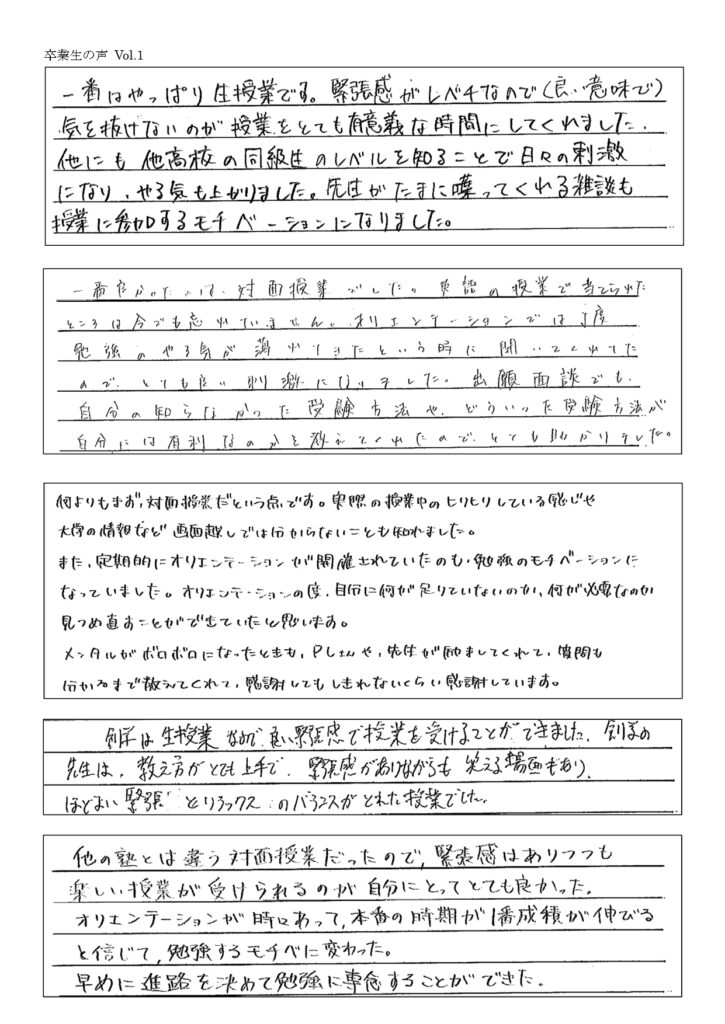 卒業生の声 Vol.1
一番はやっぱり生授業です。緊張感がレベチなので(良い意味で)
気を抜けないのが授業をとても有意義な時間にしてくれました。
他にも他高校の同級生のレベルを知ることで日々の刺激
になり、やる気も上がりました。先生がたまに喋ってくれる雑談も
授業に参加するモチベーションになりました。
一番良かったのは、対面授業でした。英語の授業で当てられた
ところは今でも忘れていません。オリエンテーションでは丁度
勉強のやる気が薄れてきたという時に開いてくれてた
ので、とても良い刺激になりました。出願面談でも、
自分の知らなかった受験方法や、どういった受験方法が
自分には有利なのかを教えてくれたので、とても助かりました。
何よりもまず、対面授業だという点です。実際の授業中のヒリヒリしている感じや
大学の情報など画面越しでは分からないことも知れました。
また、定期的にオリエンテーションが開催されていたのも、勉強のモチベーションに
なっていました。オリエンテーションの度、自分に何が足りていないのか、何が必要なのか
見つめ直すことができていたと思います。
メンタルがボロボロになったときも、Pしぇんや、先生が励ましてくれて、質問も
分かるまで教えてくれて、感謝してもしきれないくらい感謝しています。
創学は生授業なので良い緊張感で授業を受けることができました。創学の
先生は、教え方がとても上手で、緊張感がありながらも笑える場面もあり、
ほどよい緊張とリラックスのバランスがとれた授業でした。
他の塾とは違う対面授業だったので、緊張感はありつつも
楽しい授業が受けられるのが自分にとってとても良かった。
オリエンテーションが時々あって、本番の時期が1番成績が伸びる
と信じて、勉強するモチベに変わった。
早めに進路を決めて勉強に専念することができた。